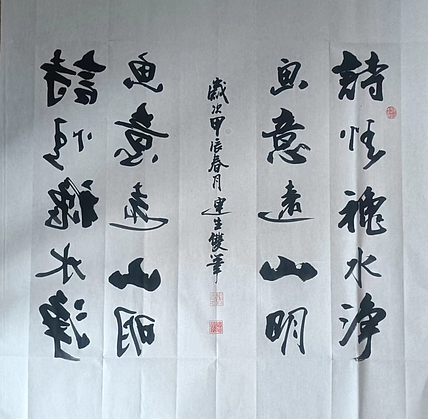 詩情穐水淨
画意遠山明
歲次甲辰春月建生雙筆
画意遠山明
詩情穐水淨